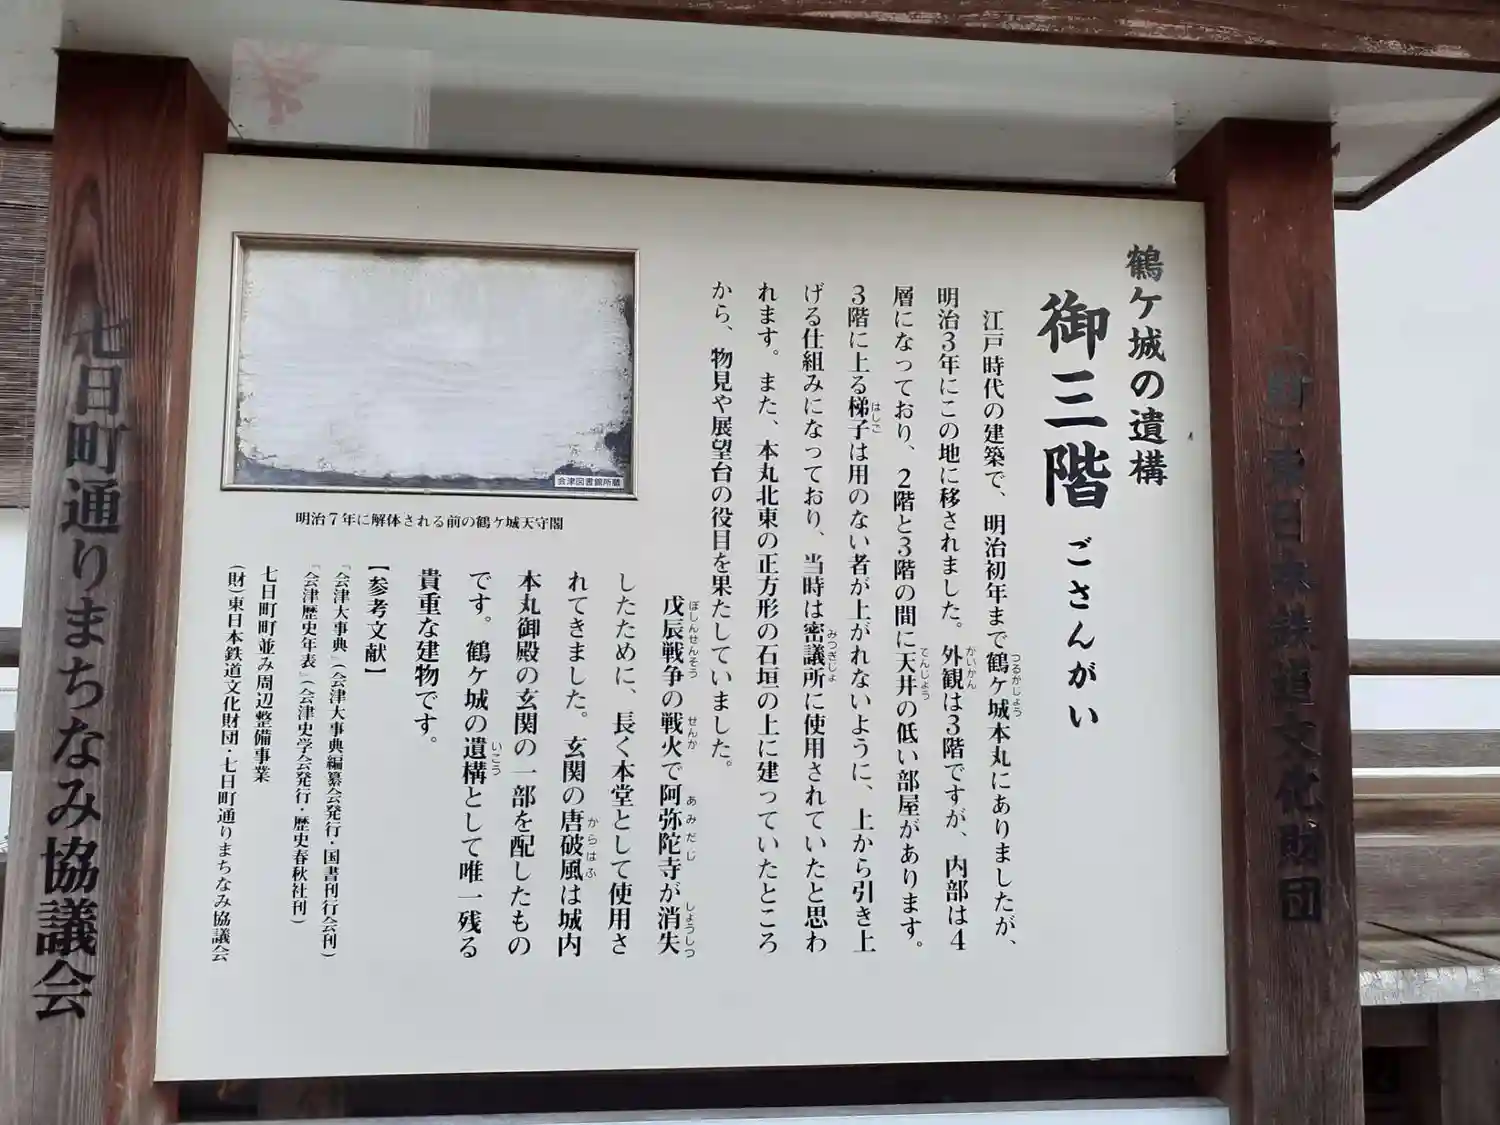 鶴ケ城の遺構
御三階 ごさんがい
江戸時代の建築で、明治初年まで鶴ケ城本丸にありましたが、
つるかじょう
明治3年にこの地に移されました。外観は3階ですが、内部は4
がいかん
層になっており、2階と3階の間に天井の低い部屋があります。
てんじょう
3階に上る梯子は用のない者が上がれないように、上から引き上
はしご
げる仕組みになっており、当時は密議所に使用されていたと思わ
みつぎしょ
れます。また、本丸北東の正方形の石垣の上に建っていたところ
から、物見や展望台の役目を果たしていました。
戊辰戦争の戦火で阿弥陀寺が消失
ぼしんせんそう せんか あみだじ しょうしつ
したために、長く本堂として使用さ
れてきました。玄関の唐破風は城内
からはふ
本丸御殿の玄関の一部を配したもの
です。鶴ケ城の遺構として唯一残る
いこう
貴重な建物です。
【参考文献】
『会津大事典』（会津大事典編纂会発行・国書刊行会刊）
『会津歴史年表』（会津史学会発行・歴史春秋社刊）
七日町町並み周辺整備事業
（財）東日本鉄道文化財団・七日町通りまちなみ協議会
会津図書館所蔵
明治7年に解体される前の鶴ケ城天守閣
（財）東日本鉄道文化財団
七日町通りまちなみ協議会